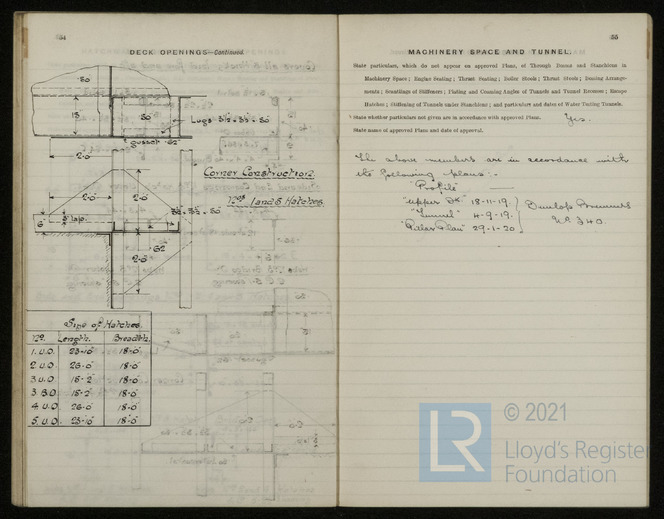 54
DECK OPENINGS—Continued.
.50
15
.50
Lugs 3½ × 3½ × .50
gusset .62
2'-0"
Corner Construction.
Nos 1 and 5 Hatches.
2'-0"
2'-0"
3½ × 3½ × .50
6"
3" lap.
.62
2'-0"
Size of Hatches.
No. Length. Breadth.
1. U.D. 23-10" 18-0"
2 U.D. 26-0" 18-0"
3 U.D. 15-2" 18-0"
3 B.D 15-2" 18-0"
4. U.D. 26-0" 18-0"
5. U.D. 23-10" 18-0"
55
MACHINERY SPACE AND TUNNEL.
State particulars, which do not appear on approved Plans, of Through Beams and Stanchions in
Machinery Space; Engine Seating; Thrust Seating; Boiler Stools; Thrust Stools; Boxing Arrange-
ments; Scantlings of Stiffeners; Plating and Coaming Angles of Tunnels and Tunnel Recesses; Escape
Hatches; Stiffening of Tunnels under Stanchions; and particulars and dates of Water Testing Tunnels.
State whether particulars not given are in accordance with approved Plans. Yes.
State names of approved Plans and date of approval.
The above members are in accordance with
the following plans:-
"Profile"
"Upper Dk" 18-11-19.
"Tunnel" 4-9-19.
"Pillar Plan" 29-1-20
Dunlop Bremners
No 340
LR
© 2021
Lloyd's Register
Foundation